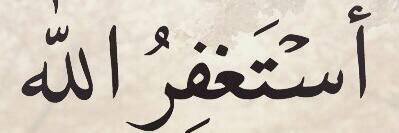 أسْتَغفِرُ اللّه